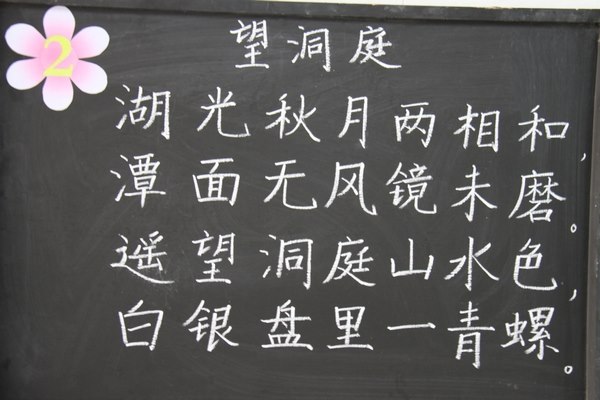 2
望洞庭
湖光秋月两相和，
潭面无风镜未磨。
遥望洞庭山水色，
白银盘里一青螺。